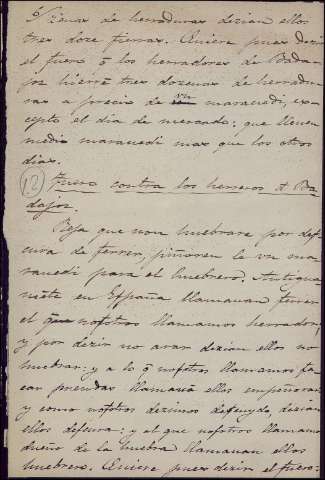 Dozenas de herraduras dezian ellos
tres doze fierras. Quiere pues dezir
el fuero q̃ los herradores de Bada-
joz hierrẽ tres dozenas de herradu-
ras a precio de vn maravedi, ex-
cepto el dia de mercado: que lleuen
medio maravedi mas que los otros
dias.
12 Fuero contra los herreros d' Ba-
dajoz.
Reja que non huebrare por def-
cura de ferrer, piñoren le vn ma-
ravedi para el huebrero. Antigua-
mẽte en España llamauan ferrer
el que nosotros llamamos herrador;
y por dezir no arar dezian ellos no
huebrar: y a lo q̃ nosotros llamamos sa-
car prendas llamauã ellos empeñorar,
y como nosotros dezimos defeuydo, dezian
ellos defcura: y el que nosotros llamamos
dueño de la huebra llamauan ellos
huebrero. Quiere pues dezir el fuero: